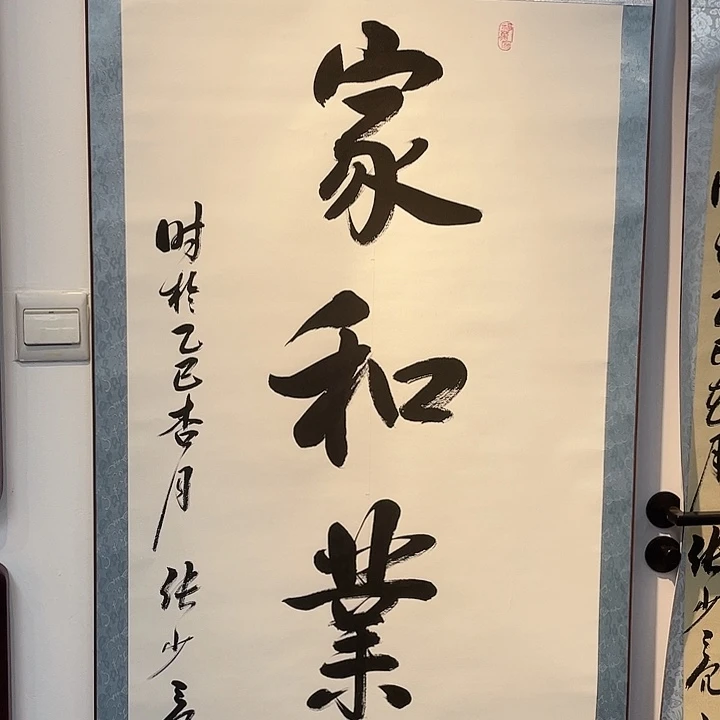 家和業
时於乙巳杏月 张少